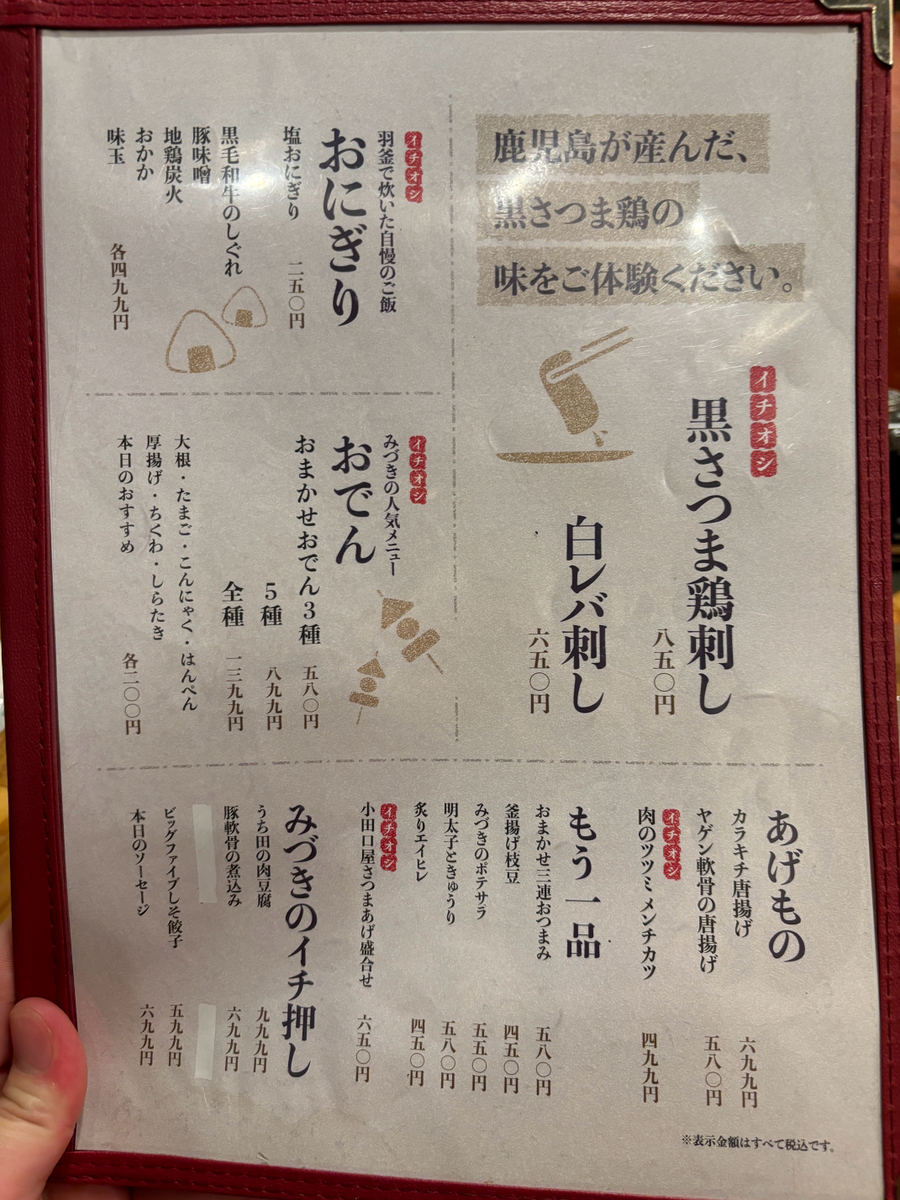 鹿児島が産んだ、
黒さつま鶏の
味をご体験ください。
イチオシ
黒さつま鶏刺し
八五〇円
白レバ刺し
六五〇円
イチオシ
羽釜で炊いた自慢のご飯
おにぎり
塩おにぎり 二五〇円
黒毛和牛のしぐれ
豚味噌
地鶏炭火
おかか
味玉
各四九九円
イチオシ
みづきの人気メニュー
おでん
おまかせおでん3種 五八〇円
5種 八九九円
全種 一三九九円
大根・たまご・こんにゃく・はんぺん
厚揚げ・ちくわ・しらたき
本日のおすすめ
各二〇〇円
あげもの
カラキチ唐揚げ 六九九円
ヤゲン軟骨の唐揚げ 五八〇円
イチオシ
肉のツツミメンチカツ 四九九円
もう一品
おまかせ三連おつまみ 五八〇円
釜揚げ枝豆 四五〇円
みづきのポテサラ 五五〇円
明太子ときゅうり 五八〇円
炙りエイヒレ 四五〇円
イチオシ
小田口屋さつまあげ盛合せ 六五〇円
みづきのイチ押し
うち田の肉豆腐 九九九円
豚軟骨の煮込み 六九九円
ビッグファイブしそ餃子 五九九円
本日のソーセージ 六九九円
※表示金額はすべて税込です。